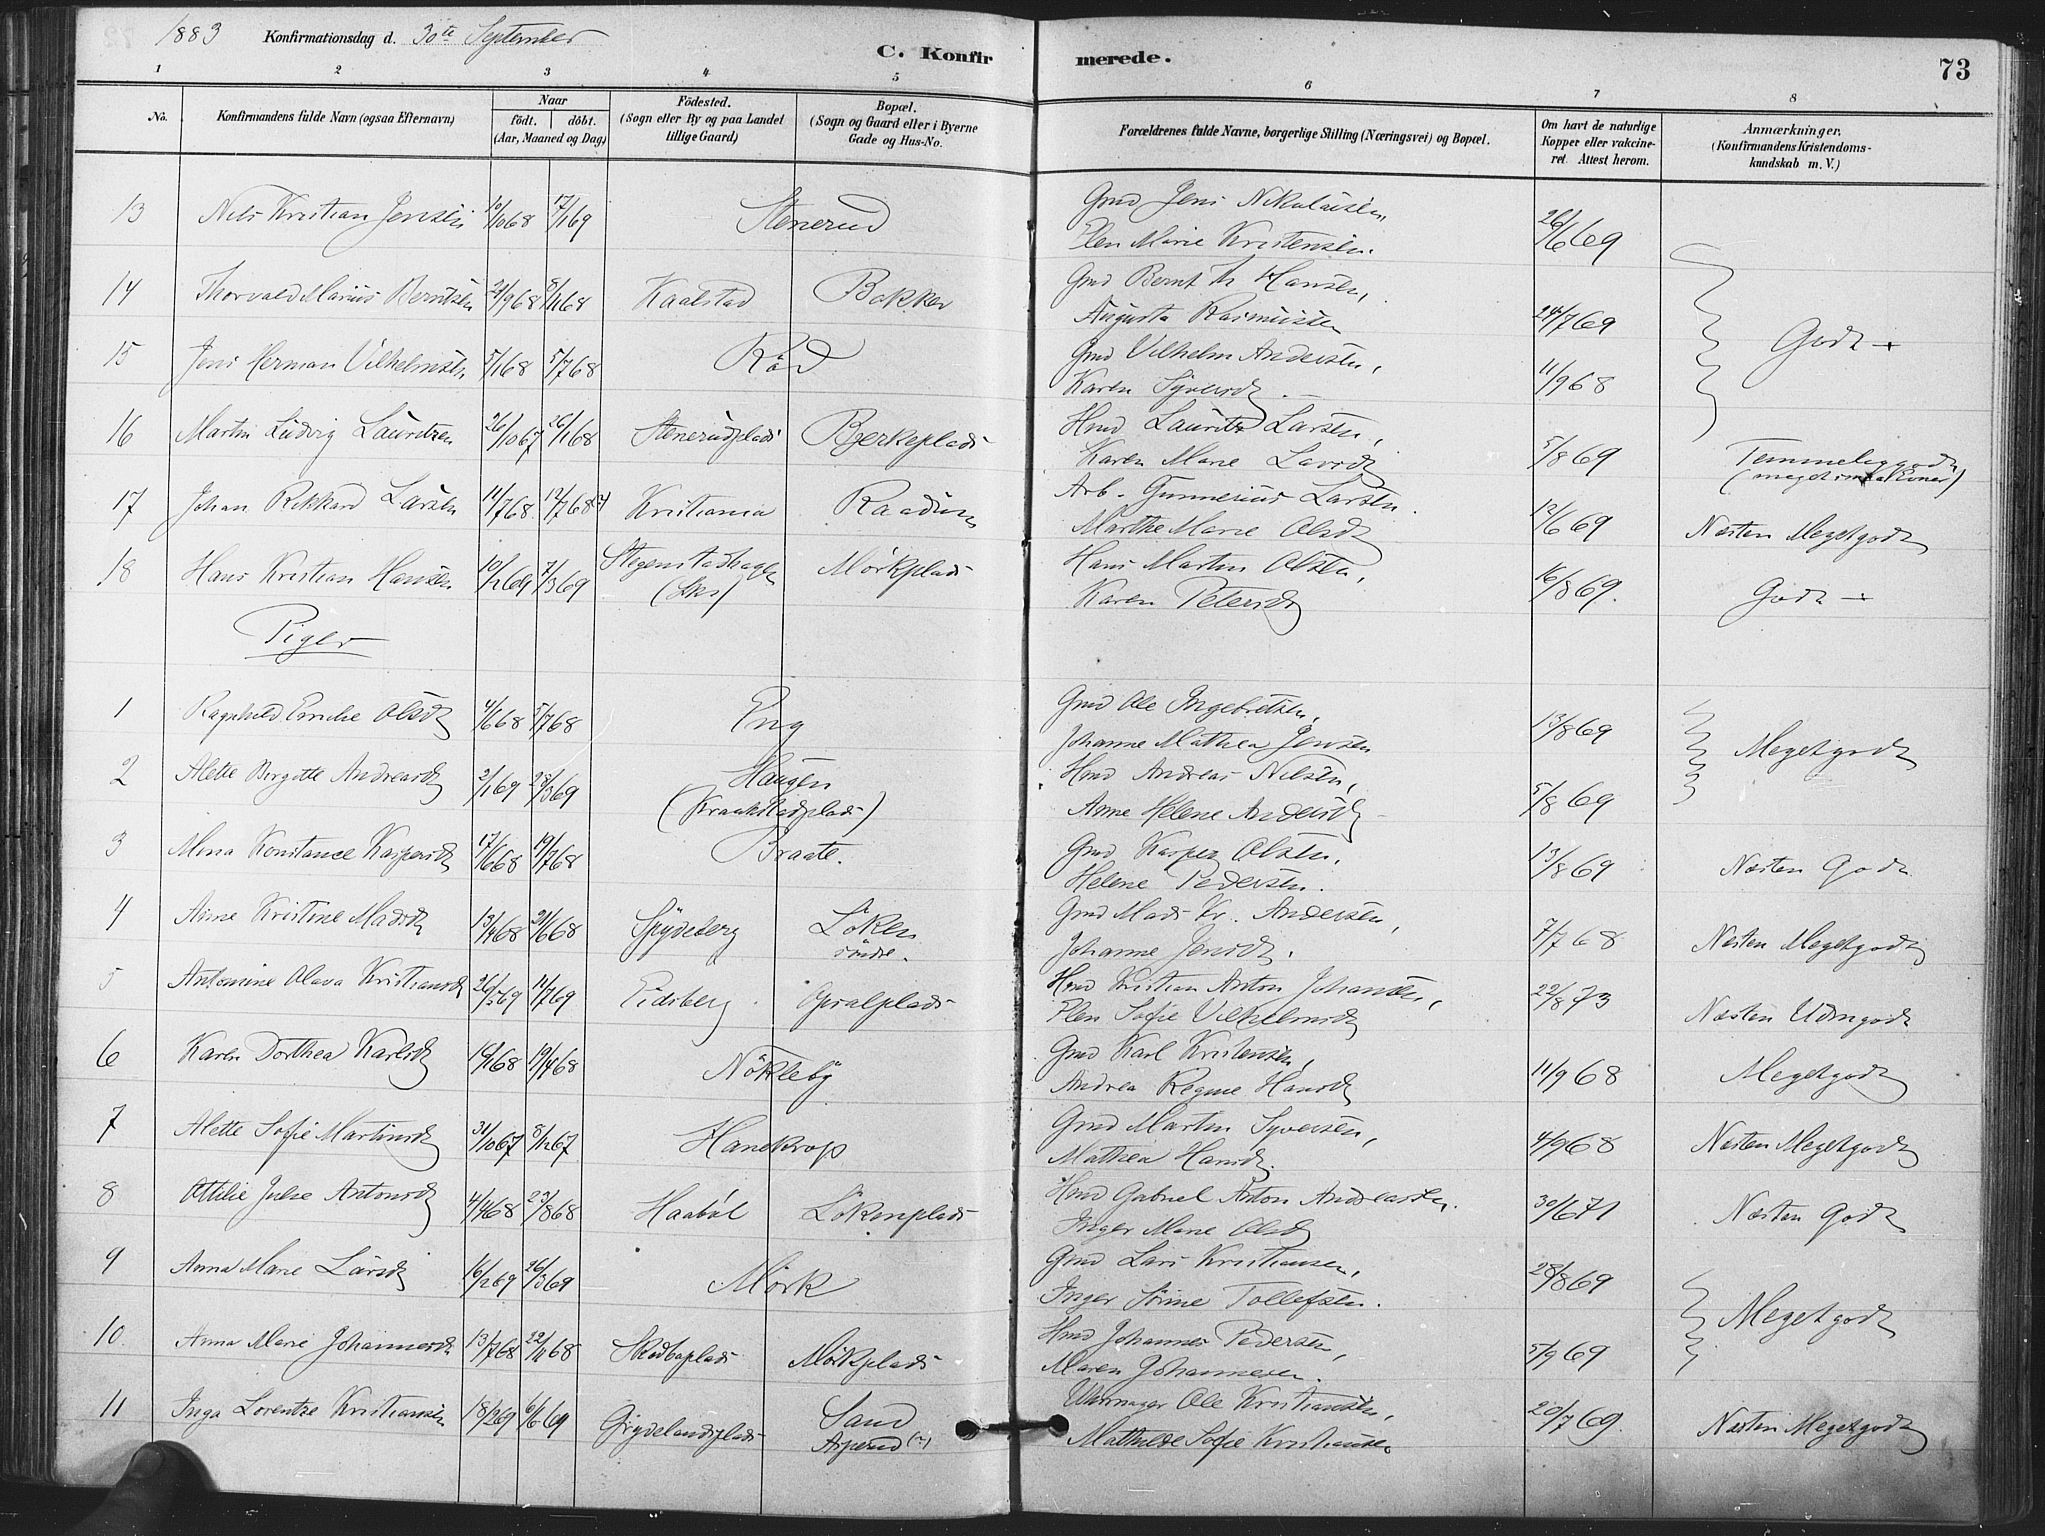 1883 Konfirmationsdag d. 30te September
C. Konfirmerede.
73
1 2 3 4 5 6 7 8
No. Konfirmandens fulde Navn (ogsaa Efternavn) Naar födt. döbt. (Aar, Maaned og Dag) Födested. (Sogn eller By og paa Landet tillige Gaard) Bopæl. (Sogn og Gaard eller i Byerne Gade og Hus-No. Forældrenes fulde Navne, borgerlige Stilling (Næringsvei) og Bopæl. Om havt de naturlige Kopper eller vakcineret. Attest herom. Anmærkninger. (Konfirmandens Kristendomskundskab m. V.)
13 Nils Kristian Jensen 10/10 68 17/1 69 Stenerud Gmd Jens Nikolaisen, 26/6 69
Elen Marie Kristensen.
14 Thorvald Marius Berntsen 24/9 68 8/11 68 Kaalstad Bakker Gmd Bernt Th Hansen, 24/7 69
Augusta Rasmussen
15 Jens Herman Vilhelmsen 5/1 68 5/7 68 Röd Gmd Vilhelm Andersen, 11/9 68 Godt
Karen Syversd
16 Martin Ludvig Lauritzen 26/10 67 26/1 68 Stenerudplads Bjerkeplads Hmd Lauritz Larsen, 5/8 69 Temmeliggodt
Karen Marie Larsd (meget smaa Evner)
17 Johan Rikkard Larsen 11/7 68 12/7 68 Kristiania Raadum Arb. Gunnerius Larsen. 12/6 69 Næsten Megetgodt
Marthe Marie Olsd
18 Hans Kristian Hansen 10/1 69 7/3 69 Stegenstadhagen (Sks) Mörkplads Hans Martin Olsen, 16/8 69. Godt
Karen Petersd
Piger
1 Ragnhild Emilie Olsd 4/6 68 5/7 68 Eng Gmd Ole Ingebretsen, 13/8 69
Johanne Mathea Jensen
2 Alette Birgitte Andreasd 2/1 69 28/3 69 Haugen Hmd Andreas Nilsen, 5/8 69 Megetgodt
(Kraakstadplads) Anne Helene Andersd
3 Mina Konstance Kaspersd 17/6 68 19/7 68 Braate. Gmd Kasper Olsen, 13/8 69 Næsten Godt
Helene Pedersen.
4 Anne Kristine Madsd 13/4 68 21/6 68 Spydeberg Löken söndre. Gmd Mads Kr. Andersen, 7/7 68 Næsten Megetgodt
Johanne Jensd.
5 Antonine Olava Kristiansd 26/5 69 11/7 69 Eidsberg Opsalplads Hmd Kristian Anton Johansen, 22/8 73 Næsten Udmgodt
Elen Sofie Vilhelmsd
6 Karen Dorthea Karlsd 19/4 68 Nökleby Gmd Karl Kristensen, 11/9 68 Megetgodt
Andrea Regine Hansd
7 Alette Sofie Martinsd 31/10 67 8/12 67 Hanekrop Gmd Martin Syversen, 4/9 68 Næsten Megetgodt
Mathea Hansd.
8 Ottilie Julie Antonsd 4/4 68 23/8 68 Haaböl Lökenplads Hmd Gabriel Anton Andreassen. 30/6 71 Næsten Godt
Inger Marie Olsd
9 Anna Marie Larsd 16/2 69 26/3 69 Mörk Gmd Lars Kristiansen, 28/8 69
Inger Sörine Tollefsen.
10 Anna Marie Johannesd 13/7 68 22/11 68 Skodboplads Mörkplads Hmd Johannes Pedersen, 5/9 69 Megetgodt
Maren Johannesen.
11 Inga Lorentze Kristiansen 18/2 69 6/6 69 Grydelandsplads Sand Urmager Ole Kristiansen, 20/7 69. Næsten Megetgodt
Asperud (:) Mathilde Sofie Kristiansen